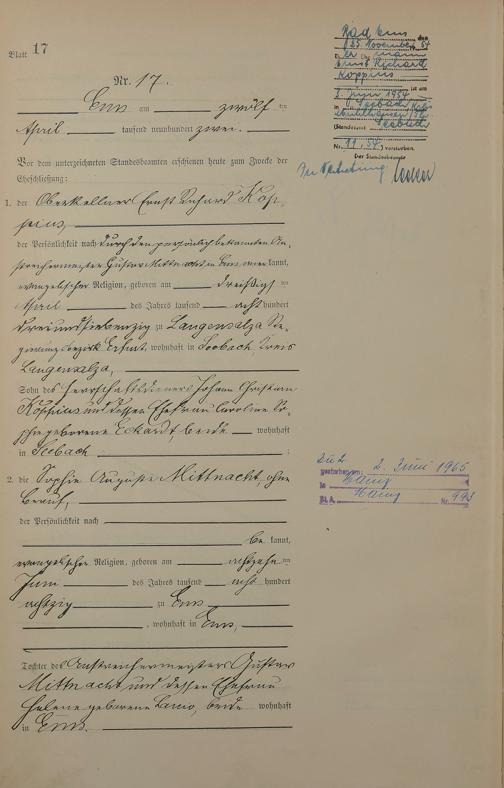 Blatt 17
Nr. 17.
Ems am zwölften
April tausend neunhundert zwei.
Vor dem unterzeichneten Standesbeamten erschienen heute zum Zwecke der
Eheschließung:
1. der Oberkellner Ernst Richard Kop-
pius,
der Persönlichkeit nach durch den persönlich bekannten An-
streichermeister Gustav Mittnacht in Ems anerkannt,
evangelischer Religion, geboren am dreißigsten
April des Jahres tausend acht hundert
dreiundsiebenzig zu Langensalza Re-
gierungsbezirk Erfurt, wohnhaft in Seebach, Kreis
Langensalza,
Sohn des Herrschaftsdieners Johann Christian
Koppius und dessen Ehefrau Caroline So-
phie geborene Eckardt, beide wohnhaft
in Seebach ;
2. die Sophie Auguste Mittnacht, ohne
Beruf,
der Persönlichkeit nach
be kannt,
evangelischer Religion, geboren am achtzehnten
Juni des Jahres tausend acht hundert
achtzig zu Ems
, wohnhaft in Ems,
Tochter des Anstreichermeisters Gustav
Mittnacht und dessen Ehefrau
Helene geborene Lamo, beide wohnhaft
in Ems.
Bad Ems, den
25. November 54
Der Ehemann
Ernst Richard
Koppius
ist am
2. Juni 1954
in Seebach, Krs.
(Standesamt Seebach
Nr. 11/54) verstorben.
Der Standesbeamte
In Vertretung
gestorben am: 2. Juni 1965
in Mainz
St.A. Mainz Nr. 993